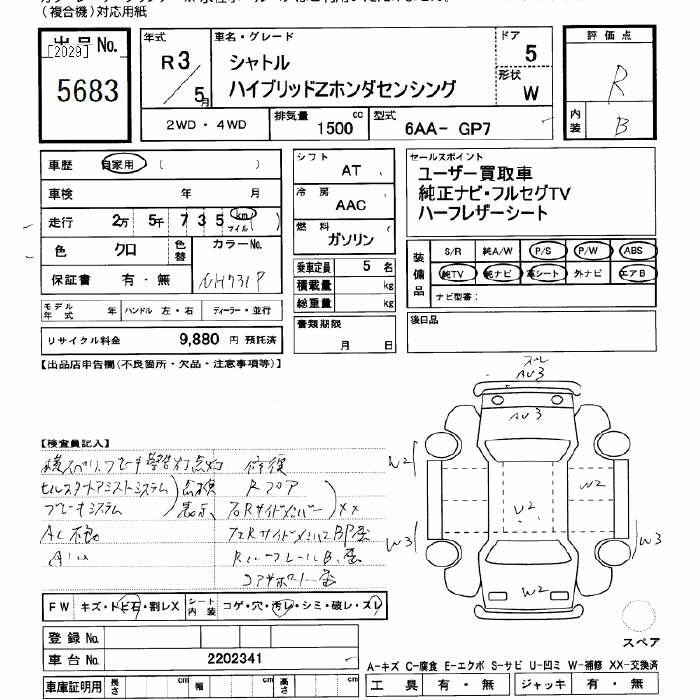 （複合機）対応用紙
出品No.
［2029］
5683
年式
R3
5月
車名・グレード
シャトル
ハイブリッドZホンダセンシング
ドア
5
形状
W
2WD・4WD
排気量
1500 cc
型式
6AA- GP7
評価点
R
内装
B
車歴 自家用（ ）
車検 年 月
走行 2万 5千 7 3 5 km マイル ( )
色 クロ 色替 カラーNo.
保証書 有・無 NH731P
シフト
AT
冷房
AAC
燃料
ガソリン
乗車定員 5 名
積載量 kg
総重量 kg
書類期限
月 日
セールスポイント
ユーザー買取車
純正ナビ・フルセグTV
ハーフレザーシート
装備品
S/R 純A/W P/S P/W ABS
純TV 純ナビ 革シート 外ナビ エアB
ナビ型番：
後日品
モデル年式 年 ハンドル 左・右 ディーラー・並行
リサイクル料金 9,880 円 預託済
【出品店申告欄(不良箇所・欠品・注意事項等)】
AU3
AU3
W2
W2
U2
W3
W3
W2
【検査員記入】
横スベリ、ブレーキ警告灯点灯 修復
ヒルスタートアシストシステム 点検 Rフロア
ブレーキシステム 表示、 XX
FW キズ・トビ石・割レX シート内装 コゲ・穴・汚レ・シミ・破レ・スレ
登録No.
車台No. 2202341
車庫証明用 長さ cm 幅 cm 高さ cm
スペア
A-キズ C-腐食 E-エクボ S-サビ U-凹ミ W-補修 XX-交換済
工具 有・無 ジャッキ 有・無